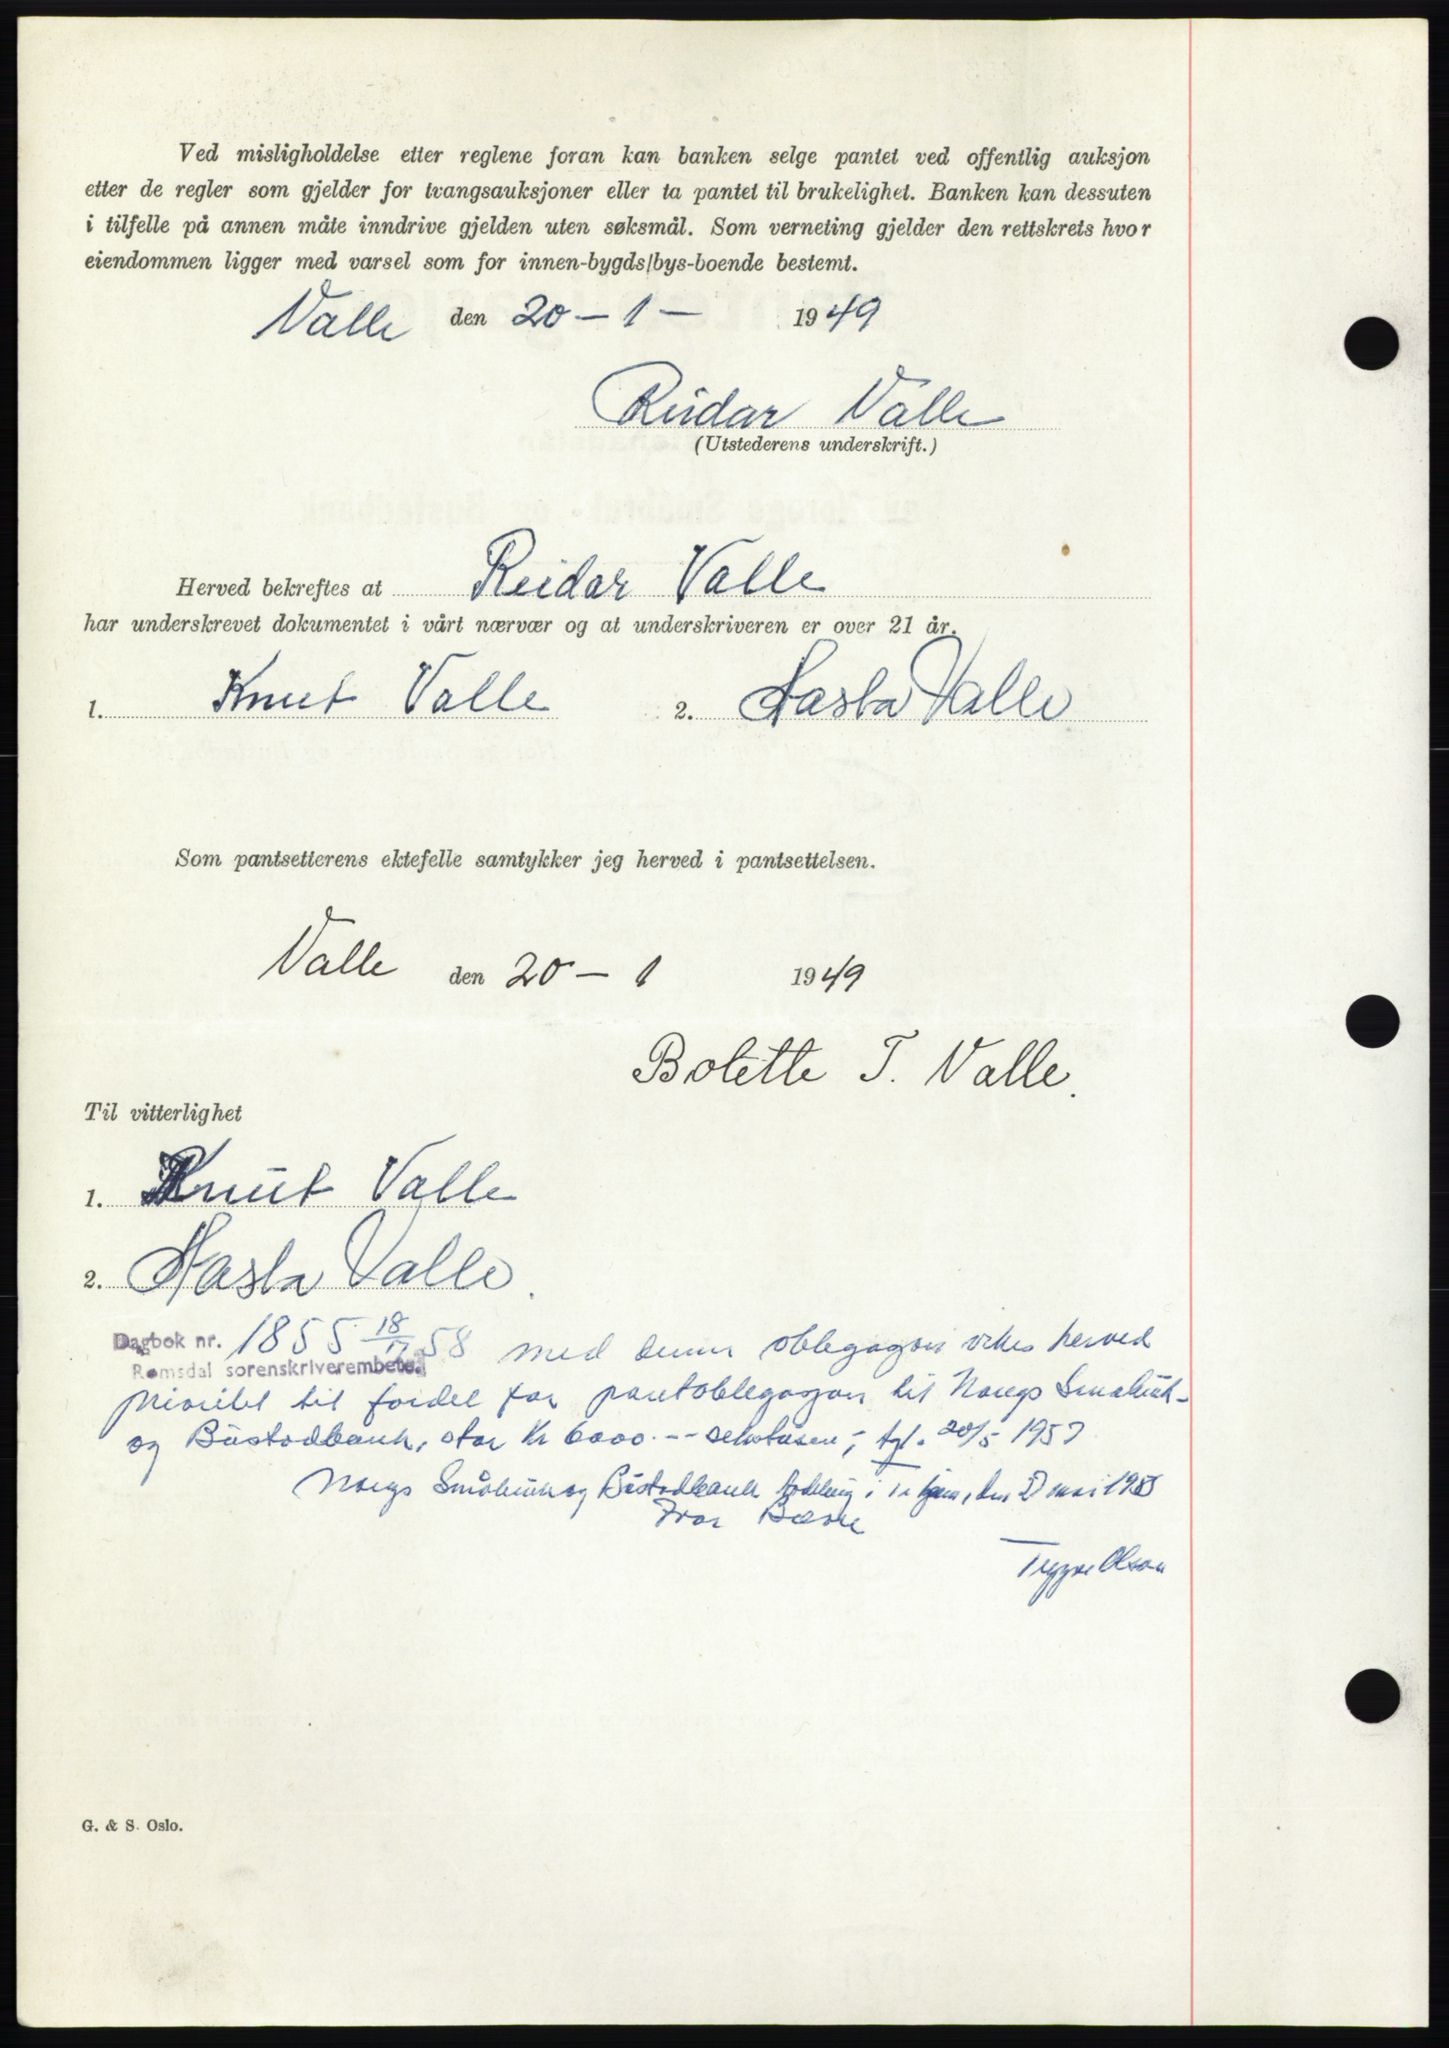 Ved misligholdelse etter reglene foran kan banken selge pantet ved offentlig auksjon
etter de regler som gjelder for tvangsauksjoner eller ta pantet til brukelighet. Banken kan dessuten
i tilfelle på annen måte inndrive gjelden uten søksmål. Som verneting gjelder den rettskrets hvor
eiendommen ligger med varsel som for innen-bygds/bys-boende bestemt.
Valle den 20 – 1 – 1949
Reidar Valle
(Utstederens underskrift.)
Herved bekreftes at Reidar Valle
har underskrevet dokumentet i vårt nærvær og at underskriveren er over 21 år.
1. Knut Valle 2. Aasta Valle
Som pantsetterens ektefelle samtykker jeg herved i pantsettelsen.
Valle den 20 – 1 1949
Bolette T. Valle.
Til vitterlighet
1. Knut Valle
2. Aasta Valle.
Dagbok nr. 1855 18/ 58 med denne obligasjon vikes herved
Romsdal sorenskriverembete
prioritet til fordel for pantobligasjon til Noregs Småbruk-
og Bustadbank, stor kr 6000.-- sekstusen, tgl. 20/5 1957
Noregs Småbruk og Bustadbank Avdeling i den mai 1958
Ivar
Trygve Olsen
G. & S. Oslo.